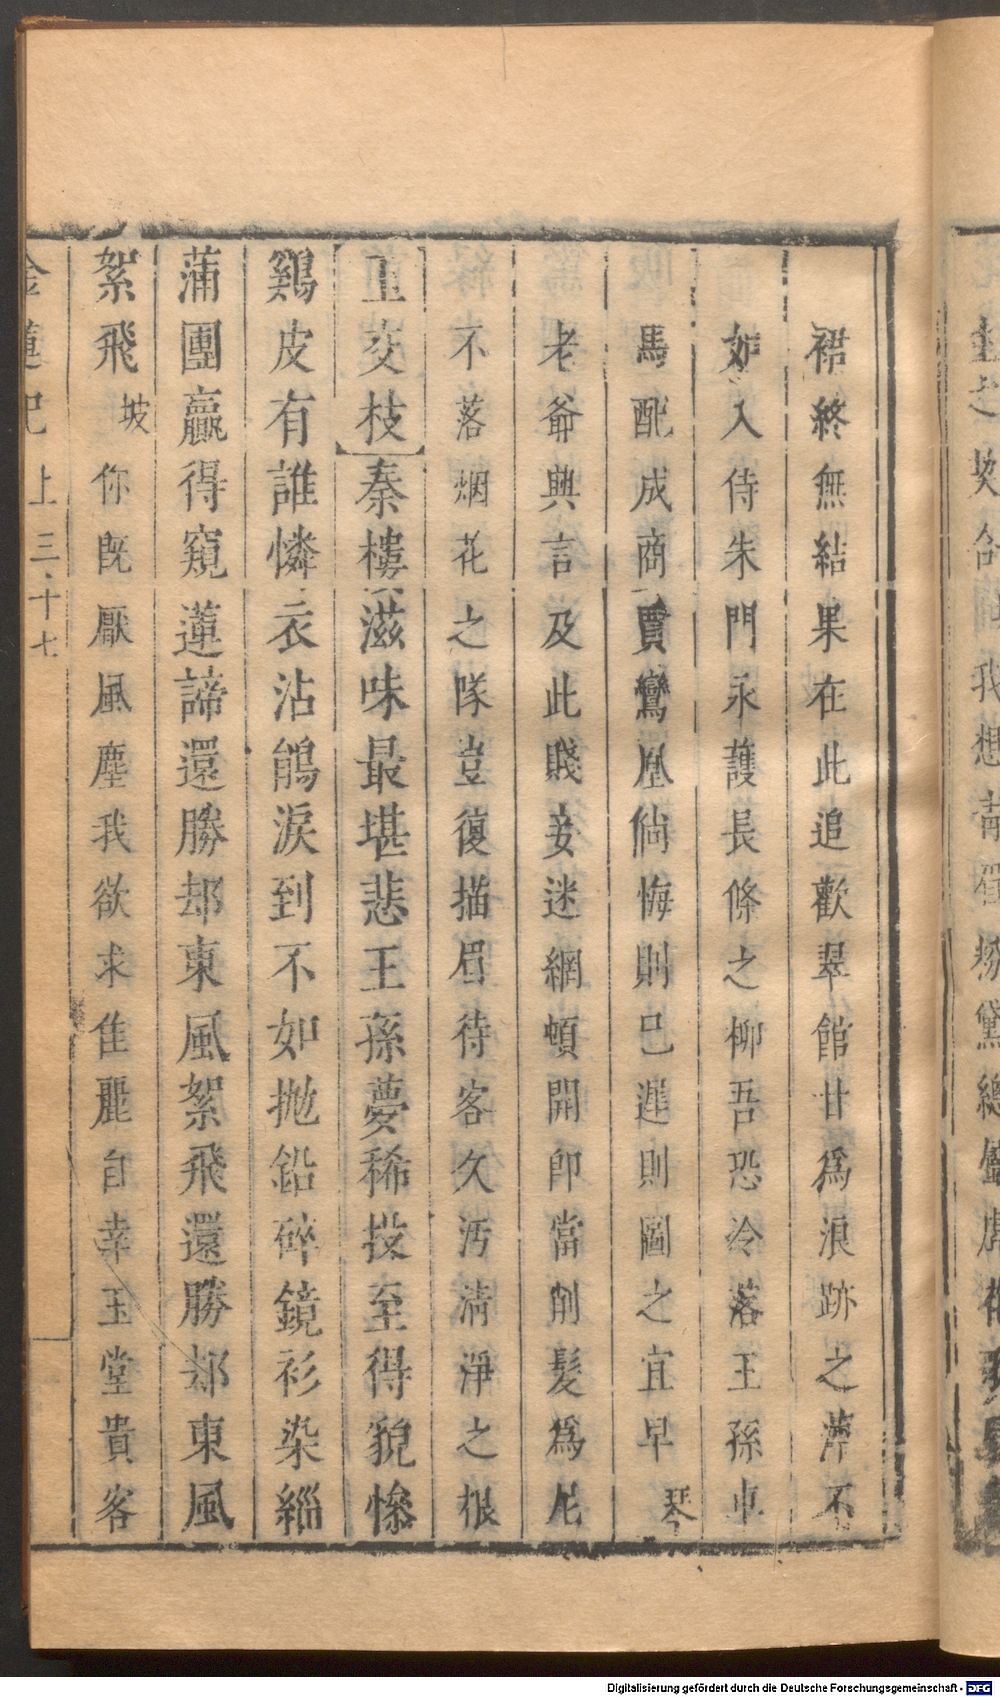 裙終無結果在此追歡翠館甘爲浪跡之萍不
如入侍朱門永護長條之柳吾恐冷落王孫車
馬配成商賈鸞凰倘悔則已遲則圖之宜早琴
老爺興言及此賤妾迷網頓開卽當削髮爲尼
不落烟花之隊豈復描眉待客久汚淸淨之根
玉交枝秦樓滋味最堪悲王孫夢稀技至得貌慘
鷄皮有誰憐衣沾鵑淚到不如拋鉛碎鏡衫染緇
蒲團贏得窺蓮諦還勝却東風絮飛還勝却東風
絮飛坡你旣厭風塵我欲求佳麗自幸玉堂貴客
金蓮記上三十七
我想靑
粉黛總
Digitalisierung gefördert durch die Deutsche Forschungsgemeinschaft - DFG